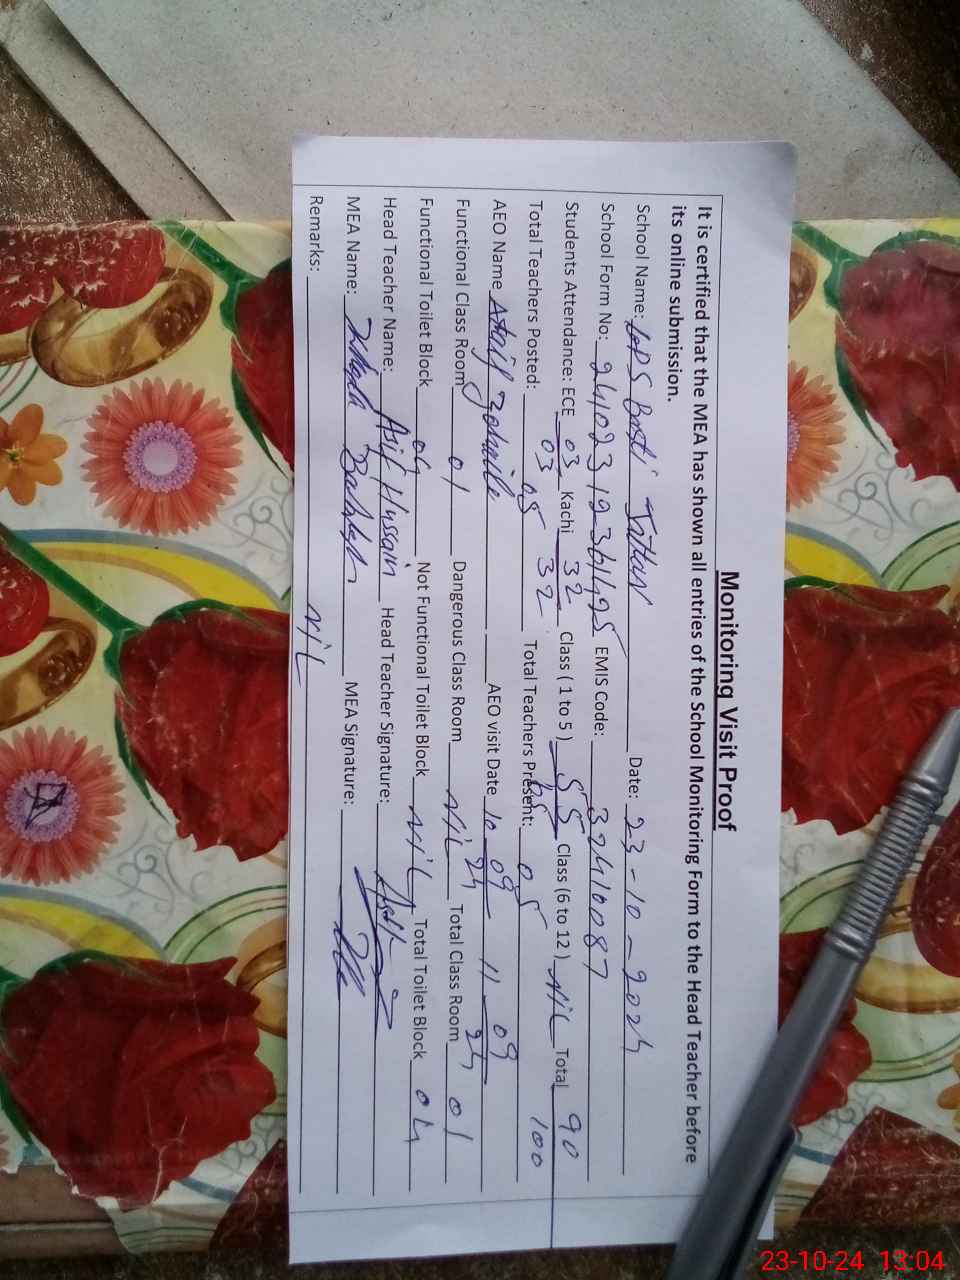 Monitoring Visit Proof
It is certified that the MEA has shown all entries of the School Monitoring Form to the Head Teacher before
its online submission.
School Name: GPS Basti Jattan Date: 23-10-2024
School Form No: 241023192361425 EMIS Code: 32410087
Students Attendance: ECE 03/03 Kachi 32/32 Class ( 1 to 5 ) 55/65 Class (6 to 12 ) Nil Total 90/100
Total Teachers Posted: 05 Total Teachers Present: 05
AEO Name AEO visit Date 10 09 24 11 09 24
Functional Class Room 01 Dangerous Class Room Nil Total Class Room 01
Functional Toilet Block 04 Not Functional Toilet Block Nil Total Toilet Block 04
Head Teacher Name: Asif Hussain Head Teacher Signature:
MEA Name: Bakhsh MEA Signature:
Remarks: NiL
23-10-24 13:04